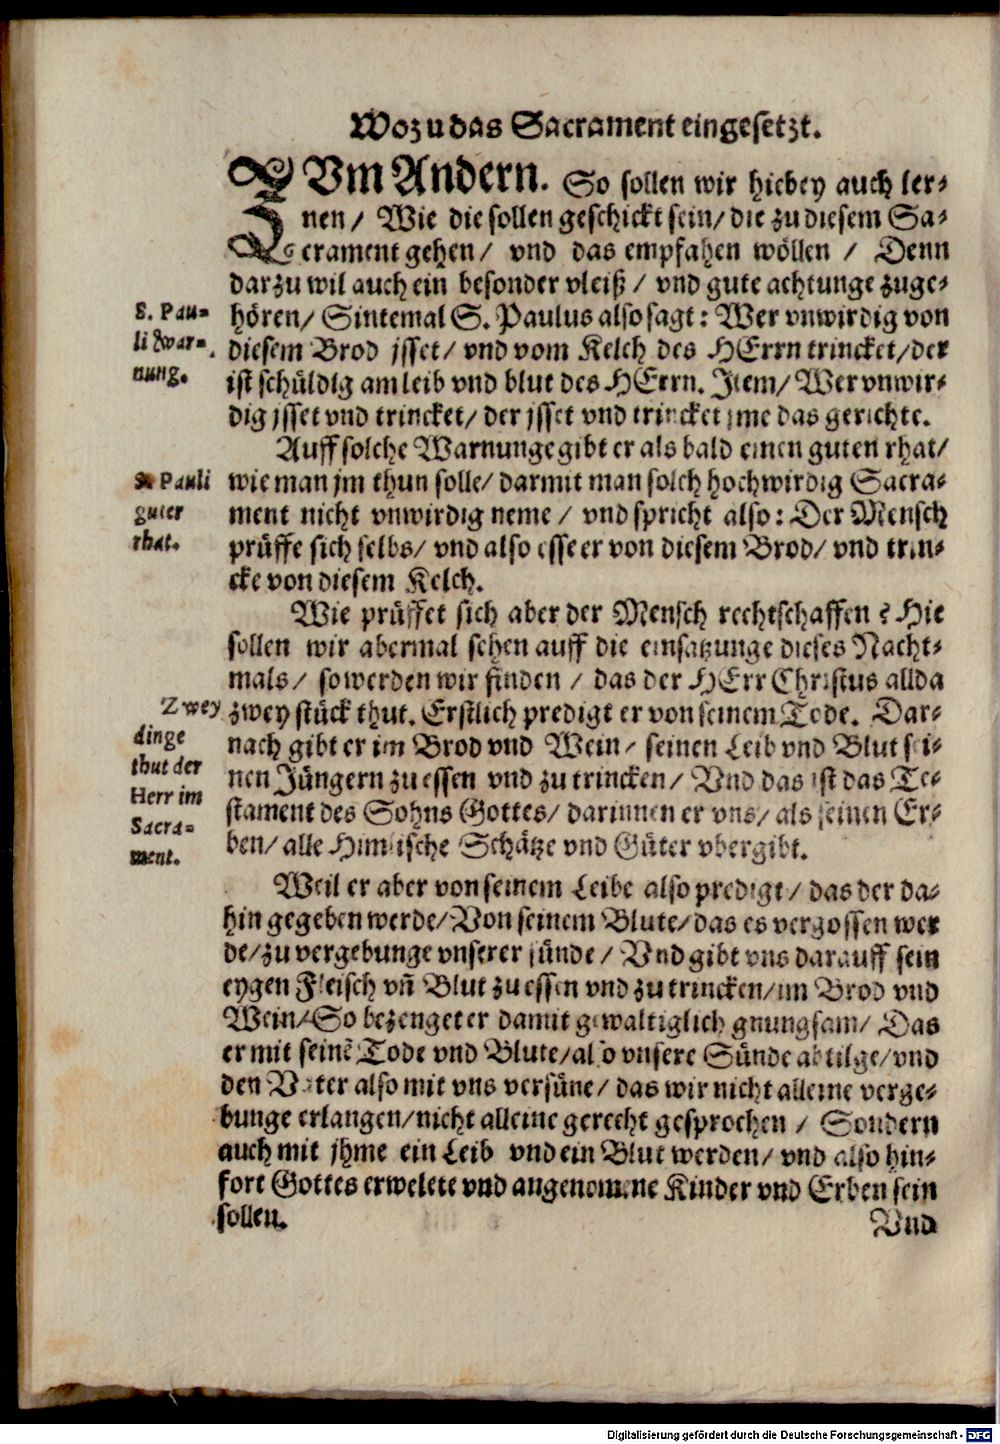 Wozu das Sacrament eingesetzt.
ZUm Andern. So sollen wir hiebey auch ler-
nen / Wie die sollen geschickt sein / die zu diesem Sa-
crament gehen / vnd das empfahen wöllen / Denn
darzu wil auch ein besonder vleiß / vnd gute achtunge zuge-
hören / Sintemal S. Paulus also sagt: Wer vnwirdig von
diesem Brod jsset / vnd vom Kelch des HErrn trincket / der
ist schüldig am leib vnd blut des HErrn. Item / Wer vnwir-
dig jsset vnd trincket / der jsset vnd trincket jme das gerichte.
S. Pau-
li War-
nung.
Auff solche Warnunge gibt er als bald einen guten rhat /
wie man jm thun solle / darmit man solch hochwirdig Sacra-
ment nicht vnwirdig neme / vnd spricht also: Der Mensch
prüffe sich selbs / vnd also esse er von diesem Brod / vnd trin-
cke von diesem Kelch.
S. Pauli
guter
rhat.
Wie prüffet sich aber der Mensch rechtschaffen? Hie
sollen wir abermal sehen auff die einsatzunge dieses Nacht-
mals / so werden wir finden / das der HErr Christus allda
zwey stück thut. Erstlich predigt er von seinem Tode. Dar-
nach gibt er im Brod vnd Wein / seinen Leib vnd Blut sei-
nen Jüngern zu essen vnd zu trincken / Vnd das ist das Te-
stament des Sohns Gottes / darinnen er vns / als seinen Er-
ben / alle Himlische Schätze vnd Güter vbergibt.
Zwey
dinge
thut der
Herr im
Sacra-
ment.
Weil er aber von seinem Leibe also predigt / das der da-
hin gegeben werde / Von seinem Blute / das es vergossen wer
de / zu vergebunge vnserer sünde / Vnd gibt vns darauff sein
eygen Fleisch vñ Blut zu essen vnd zu trincken / im Brod vnd
Wein / So bezenget er damit gewaltiglich gnungsam / Das
er mit seinē Tode vnd Blute / also vnsere Sünde abtilge / vnd
den Vater also mit vns versüne / das wir nicht alleine verge-
bunge erlangen / nicht alleine gerecht gesprochen / Sondern
auch mit jhme ein Leib vnd ein Blut werden / vnd also hin-
fort Gottes erwelete vnd angenomene Kinder vnd Erben sein
sollen.
Vnd
Digitalisierung gefördert durch die Deutsche Forschungsgemeinschaft - DFG